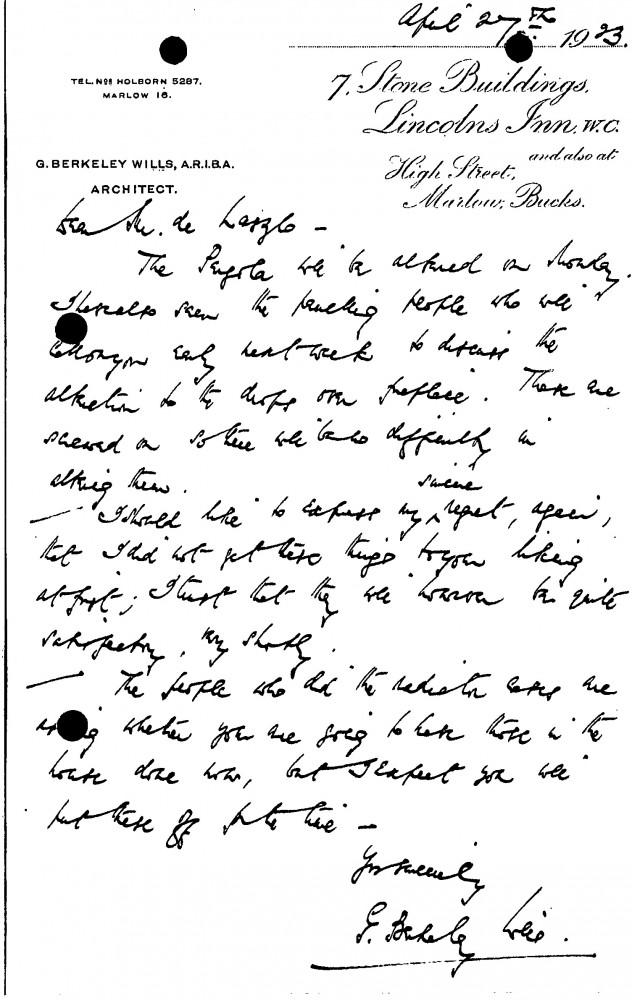 April 27th. 1923.
TEL. Nos HOLBORN 5287.
MARLOW 16.
7, Stone Buildings,
Lincolns Inn, W.C.
and also at
High Street,
Marlow, Bucks.
G. BERKELEY WILLS, A.R.I.B.A.
ARCHITECT.
Dear Mr. de Laszlo –
The Pergola will be altered on Monday.
I have also seen the panelling people who will
call on you early next week to discuss the
alteration to the drops over fireplace. These are
screwed on so there will be no difficulty in
altering them.
– I should like to express my sincere regret, again,
that I did not get these things to your liking
at first; I trust that they will however be quite
satisfactory, very shortly.
– The people who did the radiator cases are
asking whether you are going to have those in the
house done now, but I expect you will
put these off for the time –
Yrs sincerely
G. Berkeley Wills.